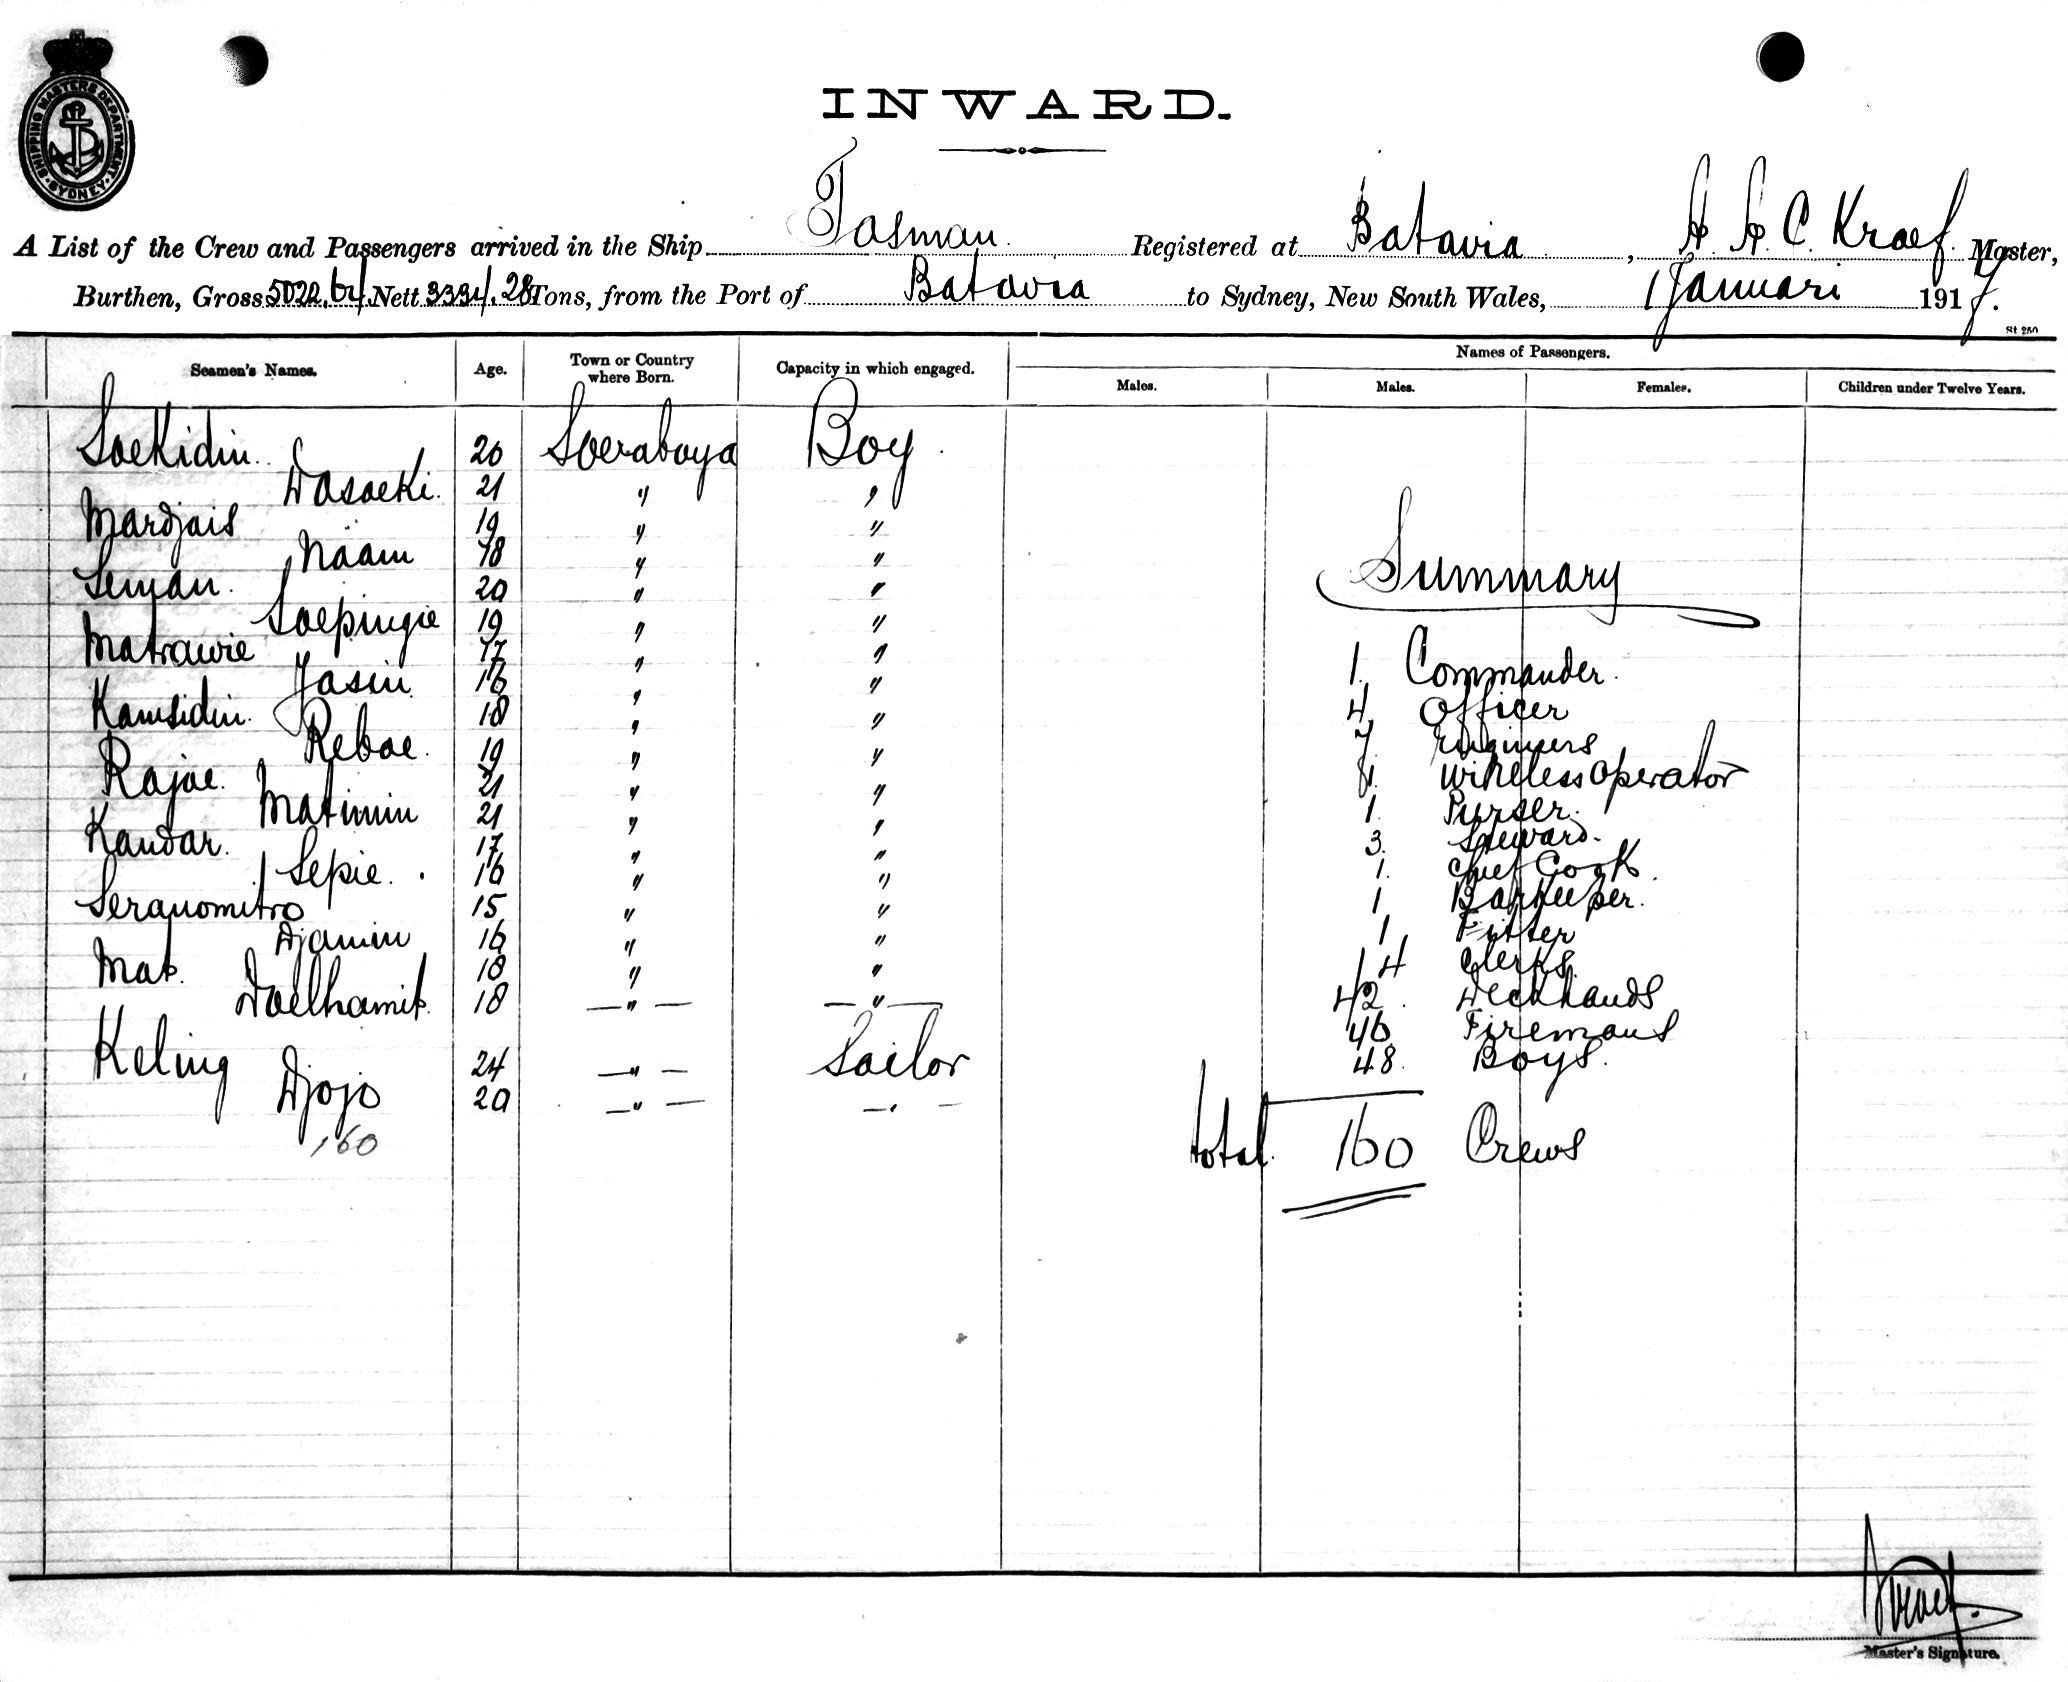 SHIPPING MASTERS DEPARTMENT. SYDNEY.
INWARD.
A List of the Crew and Passengers arrived in the Ship Tasman Registered at Batavia, H. A. C. Kraef. Master,
Burthen, Gross 5022,64 Nett 3334,28 Tons, from the Port of Batavia to Sydney, New South Wales, 1 Januari 1917.
St 250
Seamen's Names. Age. Town or Country where Born. Capacity in which engaged. Names of Passengers.
Males. Males. Females. Children under Twelve Years.
Soekidin 20 Soerabaya Boy
Dasoeki. 21 " "
Mardjais 19 " "
Naam 18 " "
Seman. 20 " "
Soepingie 19 " "
Matrawie 17 " "
Jasin 16 " "
Kamsidin. 18 " "
Reboe. 19 " "
Rajoe. 21 " "
Matimin 21 " "
Kandar. 17 " "
Sepie. 16 " "
Seranomitro 15 " "
Djamin 16 " "
Mat. 18 " "
Doelhamit. 18 — " — — " —
Keling 24 — " — Sailor
Djojo 20 — " — — " —
160
Summary
1. Commander.
4 Officer
7. Engineers
1. Wireless operator
1. Purser.
3. Steward.
1. Chief Cook.
1 Barkeeper.
1 Fitter
4 Clerks.
42. Deckhands
46 Firemans
48. Boys.
total. 160 Crews
Master's Signature.